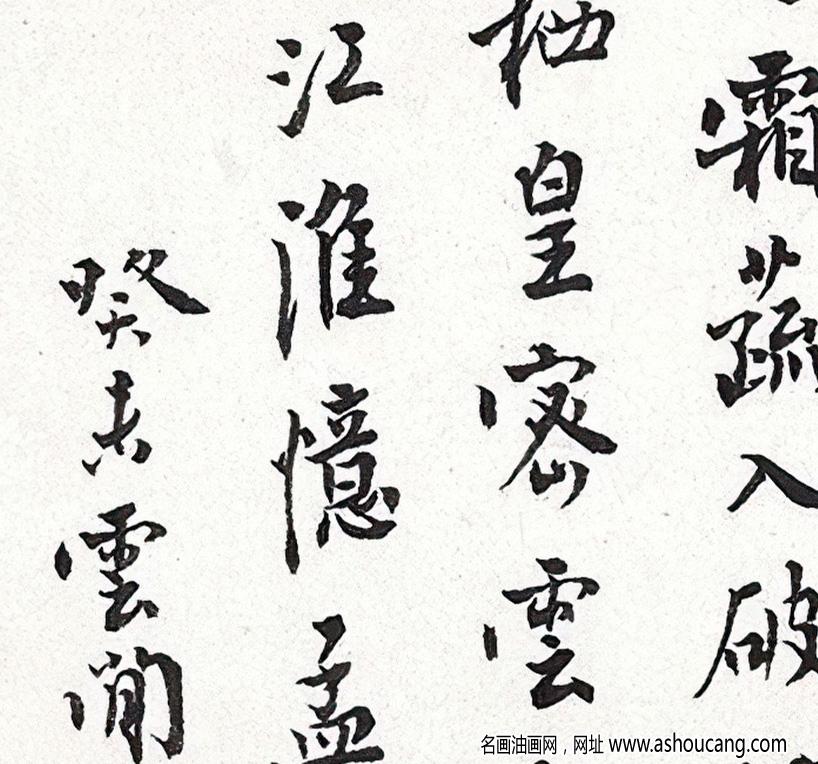 霜蔬入破
栖皇密雲
江淮憶孟
癸未雲間
名画油画网，网址 www.ashoucang.com